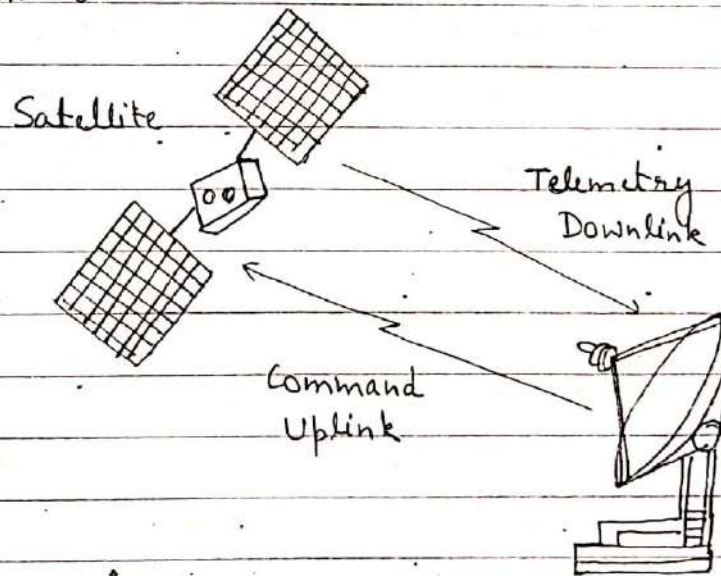 Satellite
Telemetry
Downlink
Command
Uplink